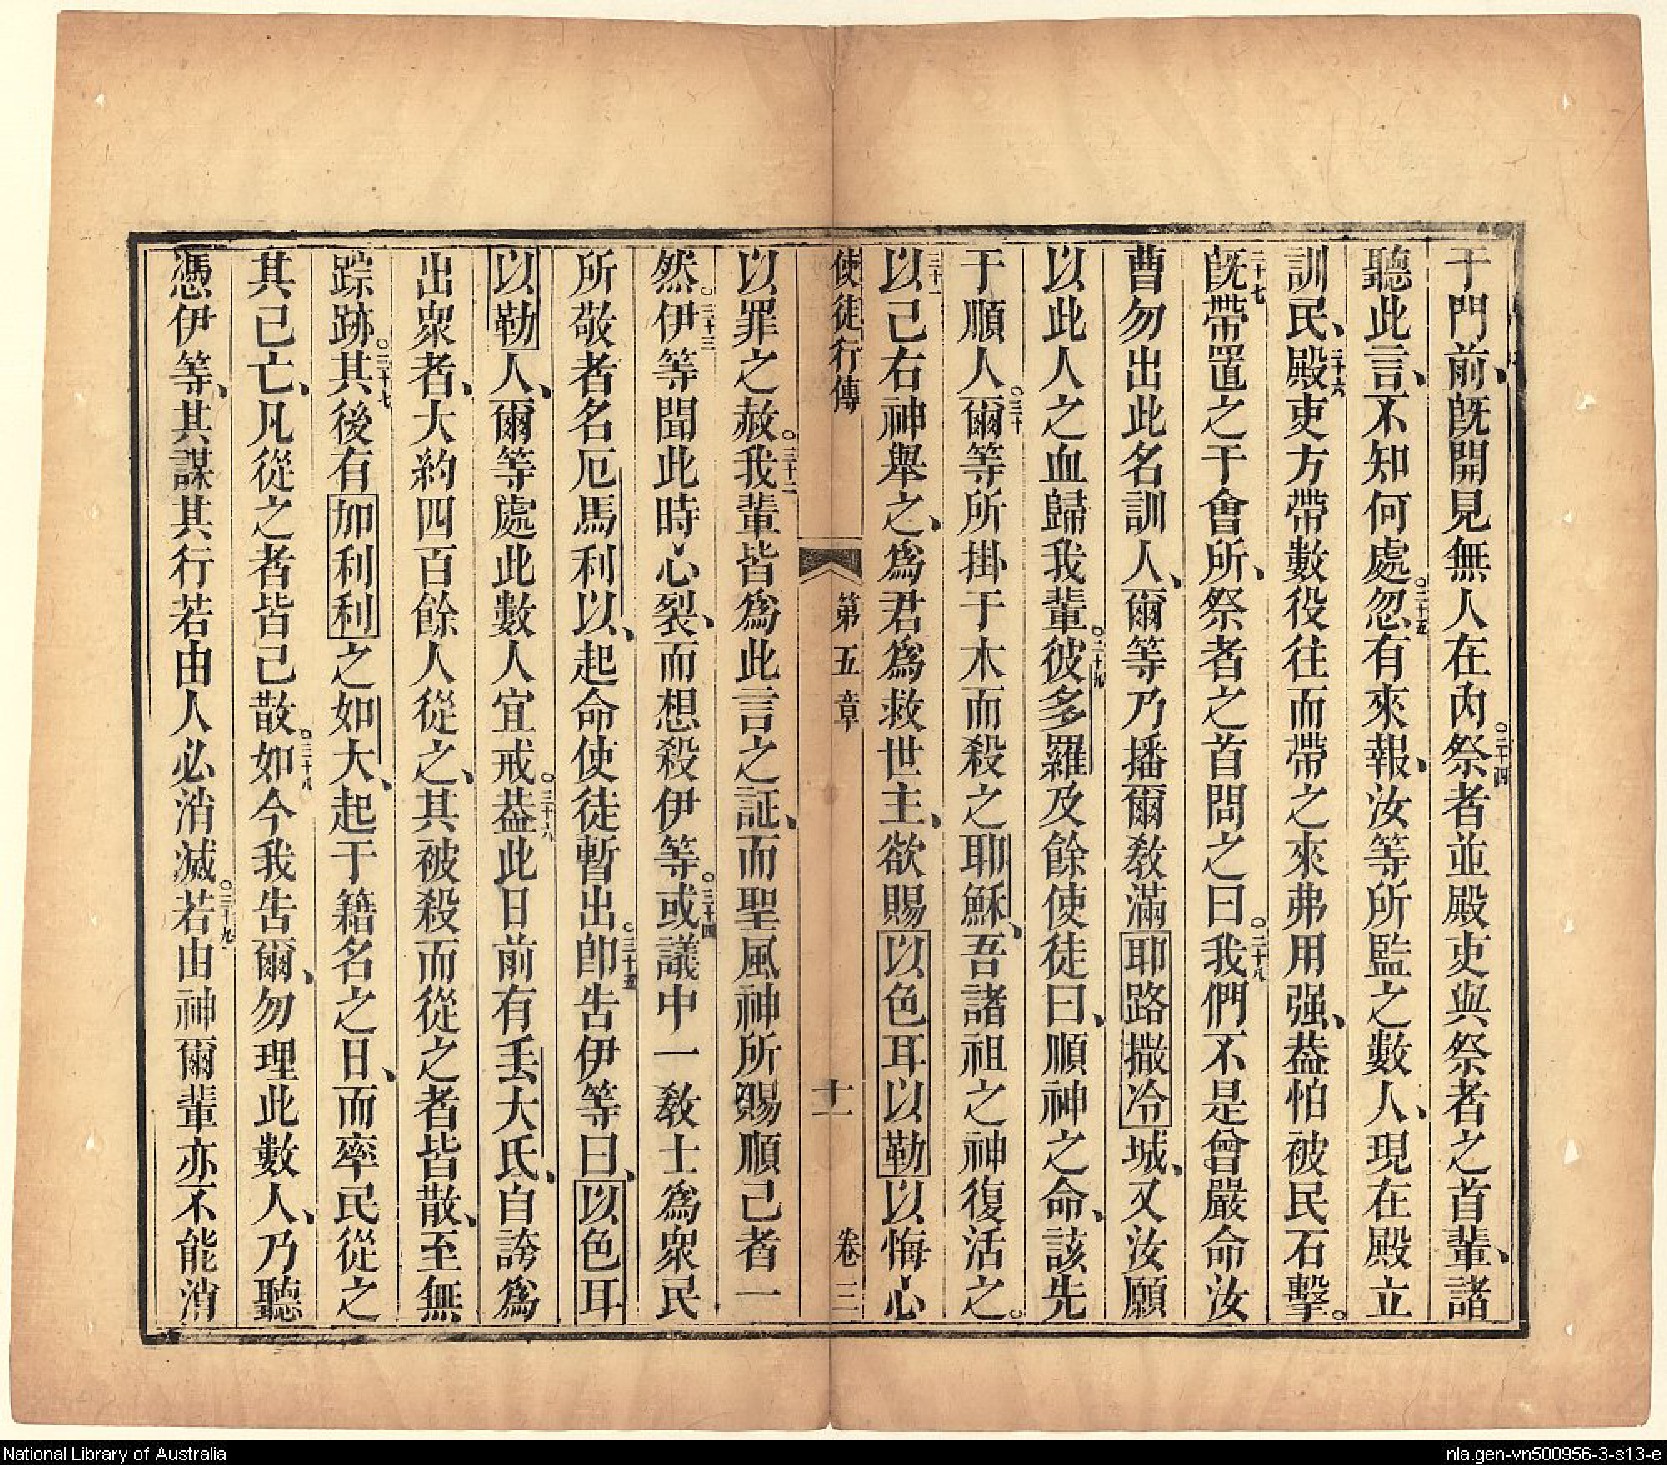 于門前、旣開見無人在內。二十四祭者並殿吏與祭者之首輩、諸
聽此言、不知何處。二十五忽有來報、汝等所監之數人、現在殿立
訓民、二十六殿吏方帶數役往而帶之來弗用强、葢怕被民石擊。
二十七旣帶置之于會所、祭者之首問之曰。二十八我們不是曾嚴命汝
曹勿出此名訓人、爾等乃播爾敎滿耶路撒冷城、又汝願
以此人之血歸我輩。二十九彼多羅及餘使徒曰、順神之命、該先
于順人。三十爾等所掛于木而殺之耶穌、吾諸祖之神復活之。
三十一以己右神舉之、爲君爲救世主、欲賜以色耳以勒以悔心
使徒行傳 第五章 十一 卷三
以罪之赦。三十二我輩皆爲此言之証、而聖風神所賜順己者一
然。三十三伊等聞此時心裂、而想殺伊等。三十四或議中一敎士爲衆民
所敬者名厄馬利以、起命使徒暫出。三十五卽告伊等曰、以色耳
以勒人、爾等處此數人宜戒。三十六葢此日前有丢大氏、自誇爲
出衆者、大約四百餘人從之、其被殺而從之者皆散、至無
踪跡。三十七其後有加利利之如大、起于籍名之日、而率民從之
其已亡、凡從之者皆已散。三十八如今我告爾、勿理此數人、乃聽
憑伊等、其謀其行若由人必消滅。三十九若由神爾輩亦不能消
National Library of Australia
nla.gen-vn500956-3-s13-e